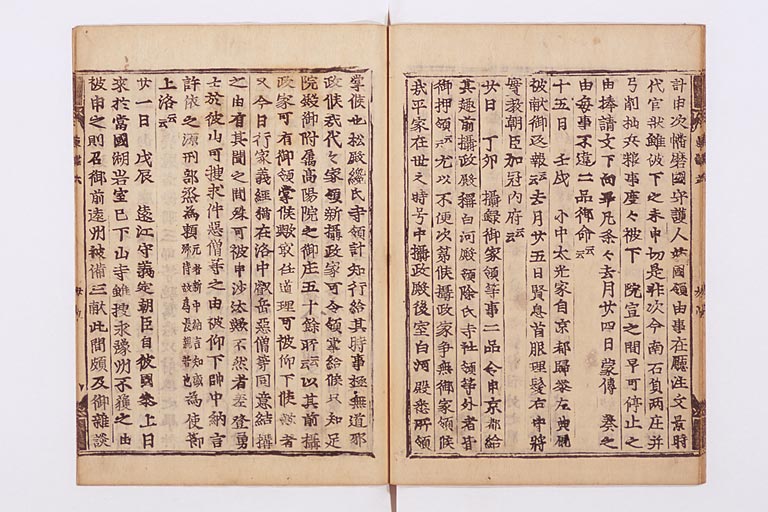 計申次播磨國守護人妨國領由事在廳注文景時
代官狀雖被下之未申切是非次今南石負两庄并
弓削杣兵粮事度々被下 院宣之間早可停止之
由捧請文下向平凡条々去月廿四日蒙傳 奏之
由毎事不違二品御命云云
十五日 壬戌 小中太光家自京都歸參左典厩
被献御返報云云去月廿五日賢息首服理髮右中將
實教朝臣加冠内府云云
廿日 丁卯 攝録御家領等事二品令申京都給
其趣前攝政殿撰白河殿領除氏寺社領等外者皆
御押領云云尤以不便次候攝政家爭無御家領候
我平家在世之時号中攝政殿後室白河殿悉所領
掌候也松殿纔氏寺領計知行給其時事極無道邪
政候我代々家領新攝政家可令領掌給候只知足
院殿御附屬高陽院之御庄五十餘所云云以其前攝
政家可有御領掌候歟任道理可被仰下候者
又今日行家義經猶在洛中叡岳惡僧等同意結構
之由有其聞之間殊可被申沙汰歟不然者奉登勇
士於彼山可搜求件惡僧等之由被仰下帥中納言
許依之源刑部丞為頼元者新中納言知盛侍故為長者也為使節
上洛云云
廿一日 戊辰 遠江守義定朝臣自彼國參上日
来於當國湖岩室已下山寺雖搜求豫州不獲之由
被申之則召御前遠州被備三献此間頗及御雜談